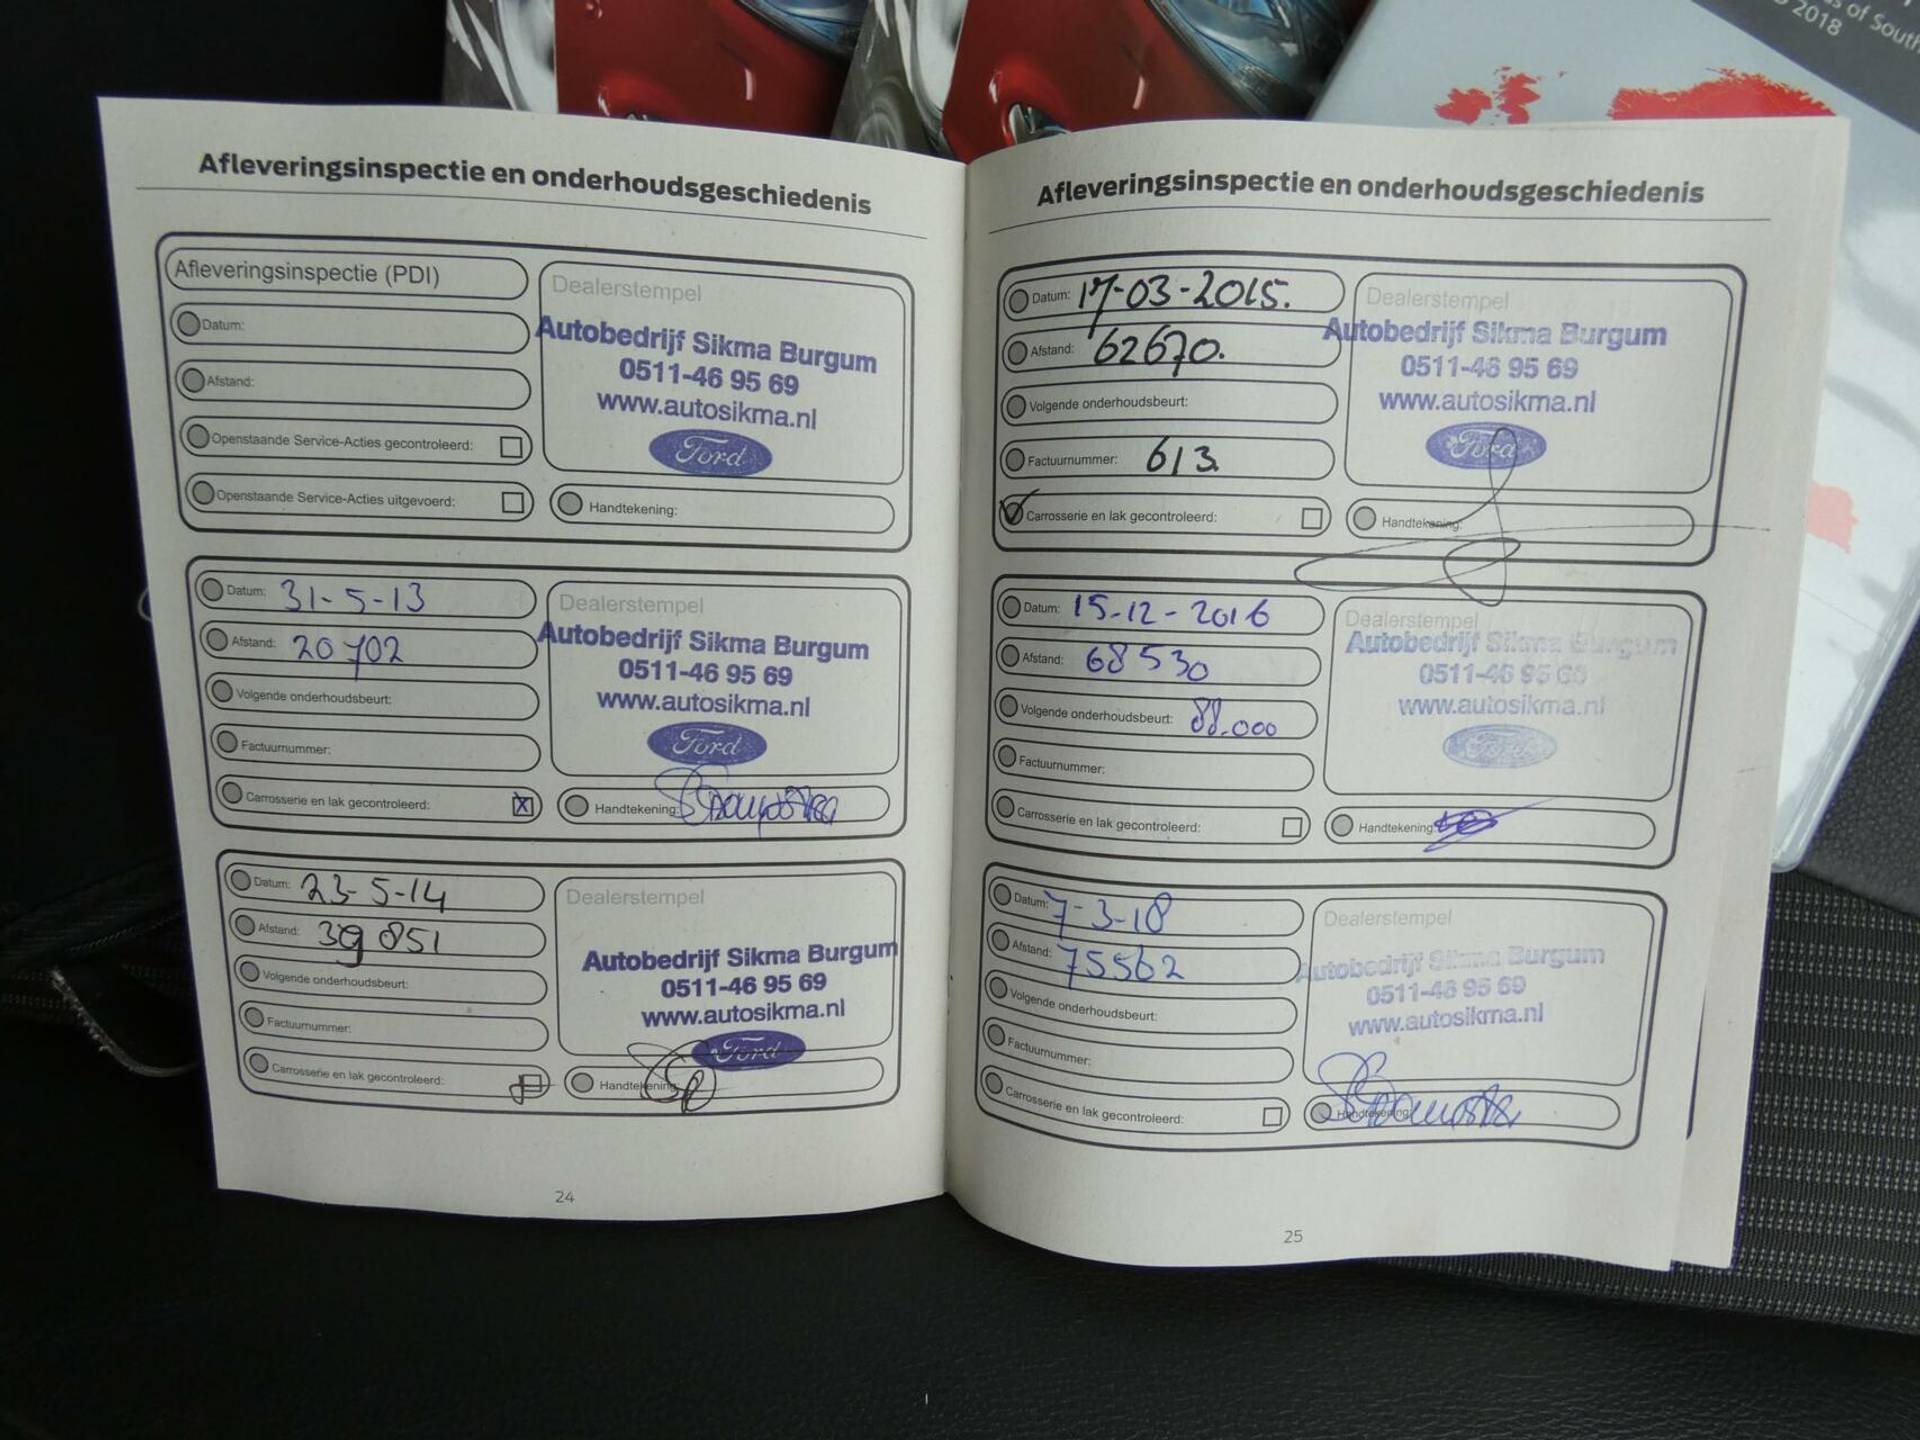 s of South
2018
Afleveringsinspectie en onderhoudsgeschiedenis
Afleveringsinspectie (PDI)
Datum:
Afstand:
Openstaande Service-Acties gecontroleerd:
Openstaande Service-Acties uitgevoerd:
Dealerstempel
Autobedrijf Sikma Burgum
0511-46 95 69
www.autosikma.nl
Ford
Handtekening:
Datum: 31-5-13
Afstand: 20702
Volgende onderhoudsbeurt:
Factuurnummer:
Carrosserie en lak gecontroleerd: X
Dealerstempel
Autobedrijf Sikma Burgum
0511-46 95 69
www.autosikma.nl
Ford
Handtekening:
Datum: 23-5-14
Afstand: 39851
Volgende onderhoudsbeurt:
Factuurnummer:
Carrosserie en lak gecontroleerd:
Dealerstempel
Autobedrijf Sikma Burgum
0511-46 95 69
www.autosikma.nl
Ford
Handtekening
24
Afleveringsinspectie en onderhoudsgeschiedenis
Datum: 17-03-2015.
Afstand: 62670.
Volgende onderhoudsbeurt:
Factuurnummer: 613.
Carrosserie en lak gecontroleerd:
Dealerstempel
Autobedrijf Sikma Burgum
0511-46 95 69
www.autosikma.nl
Ford
Handtekening:
Datum: 15-12-2016
Afstand: 68530
Volgende onderhoudsbeurt: 88.000
Factuurnummer:
Carrosserie en lak gecontroleerd:
Dealerstempel
Autobedrijf Sikma Burgum
0511-46 95 69
www.autosikma.nl
Ford
Handtekening
Datum: 7-3-18
Afstand: 75562
Volgende onderhoudsbeurt:
Factuurnummer:
Carrosserie en lak gecontroleerd:
Dealerstempel
Autobedrijf Sikma Burgum
0511-46 95 69
www.autosikma.nl
Handtekening
25